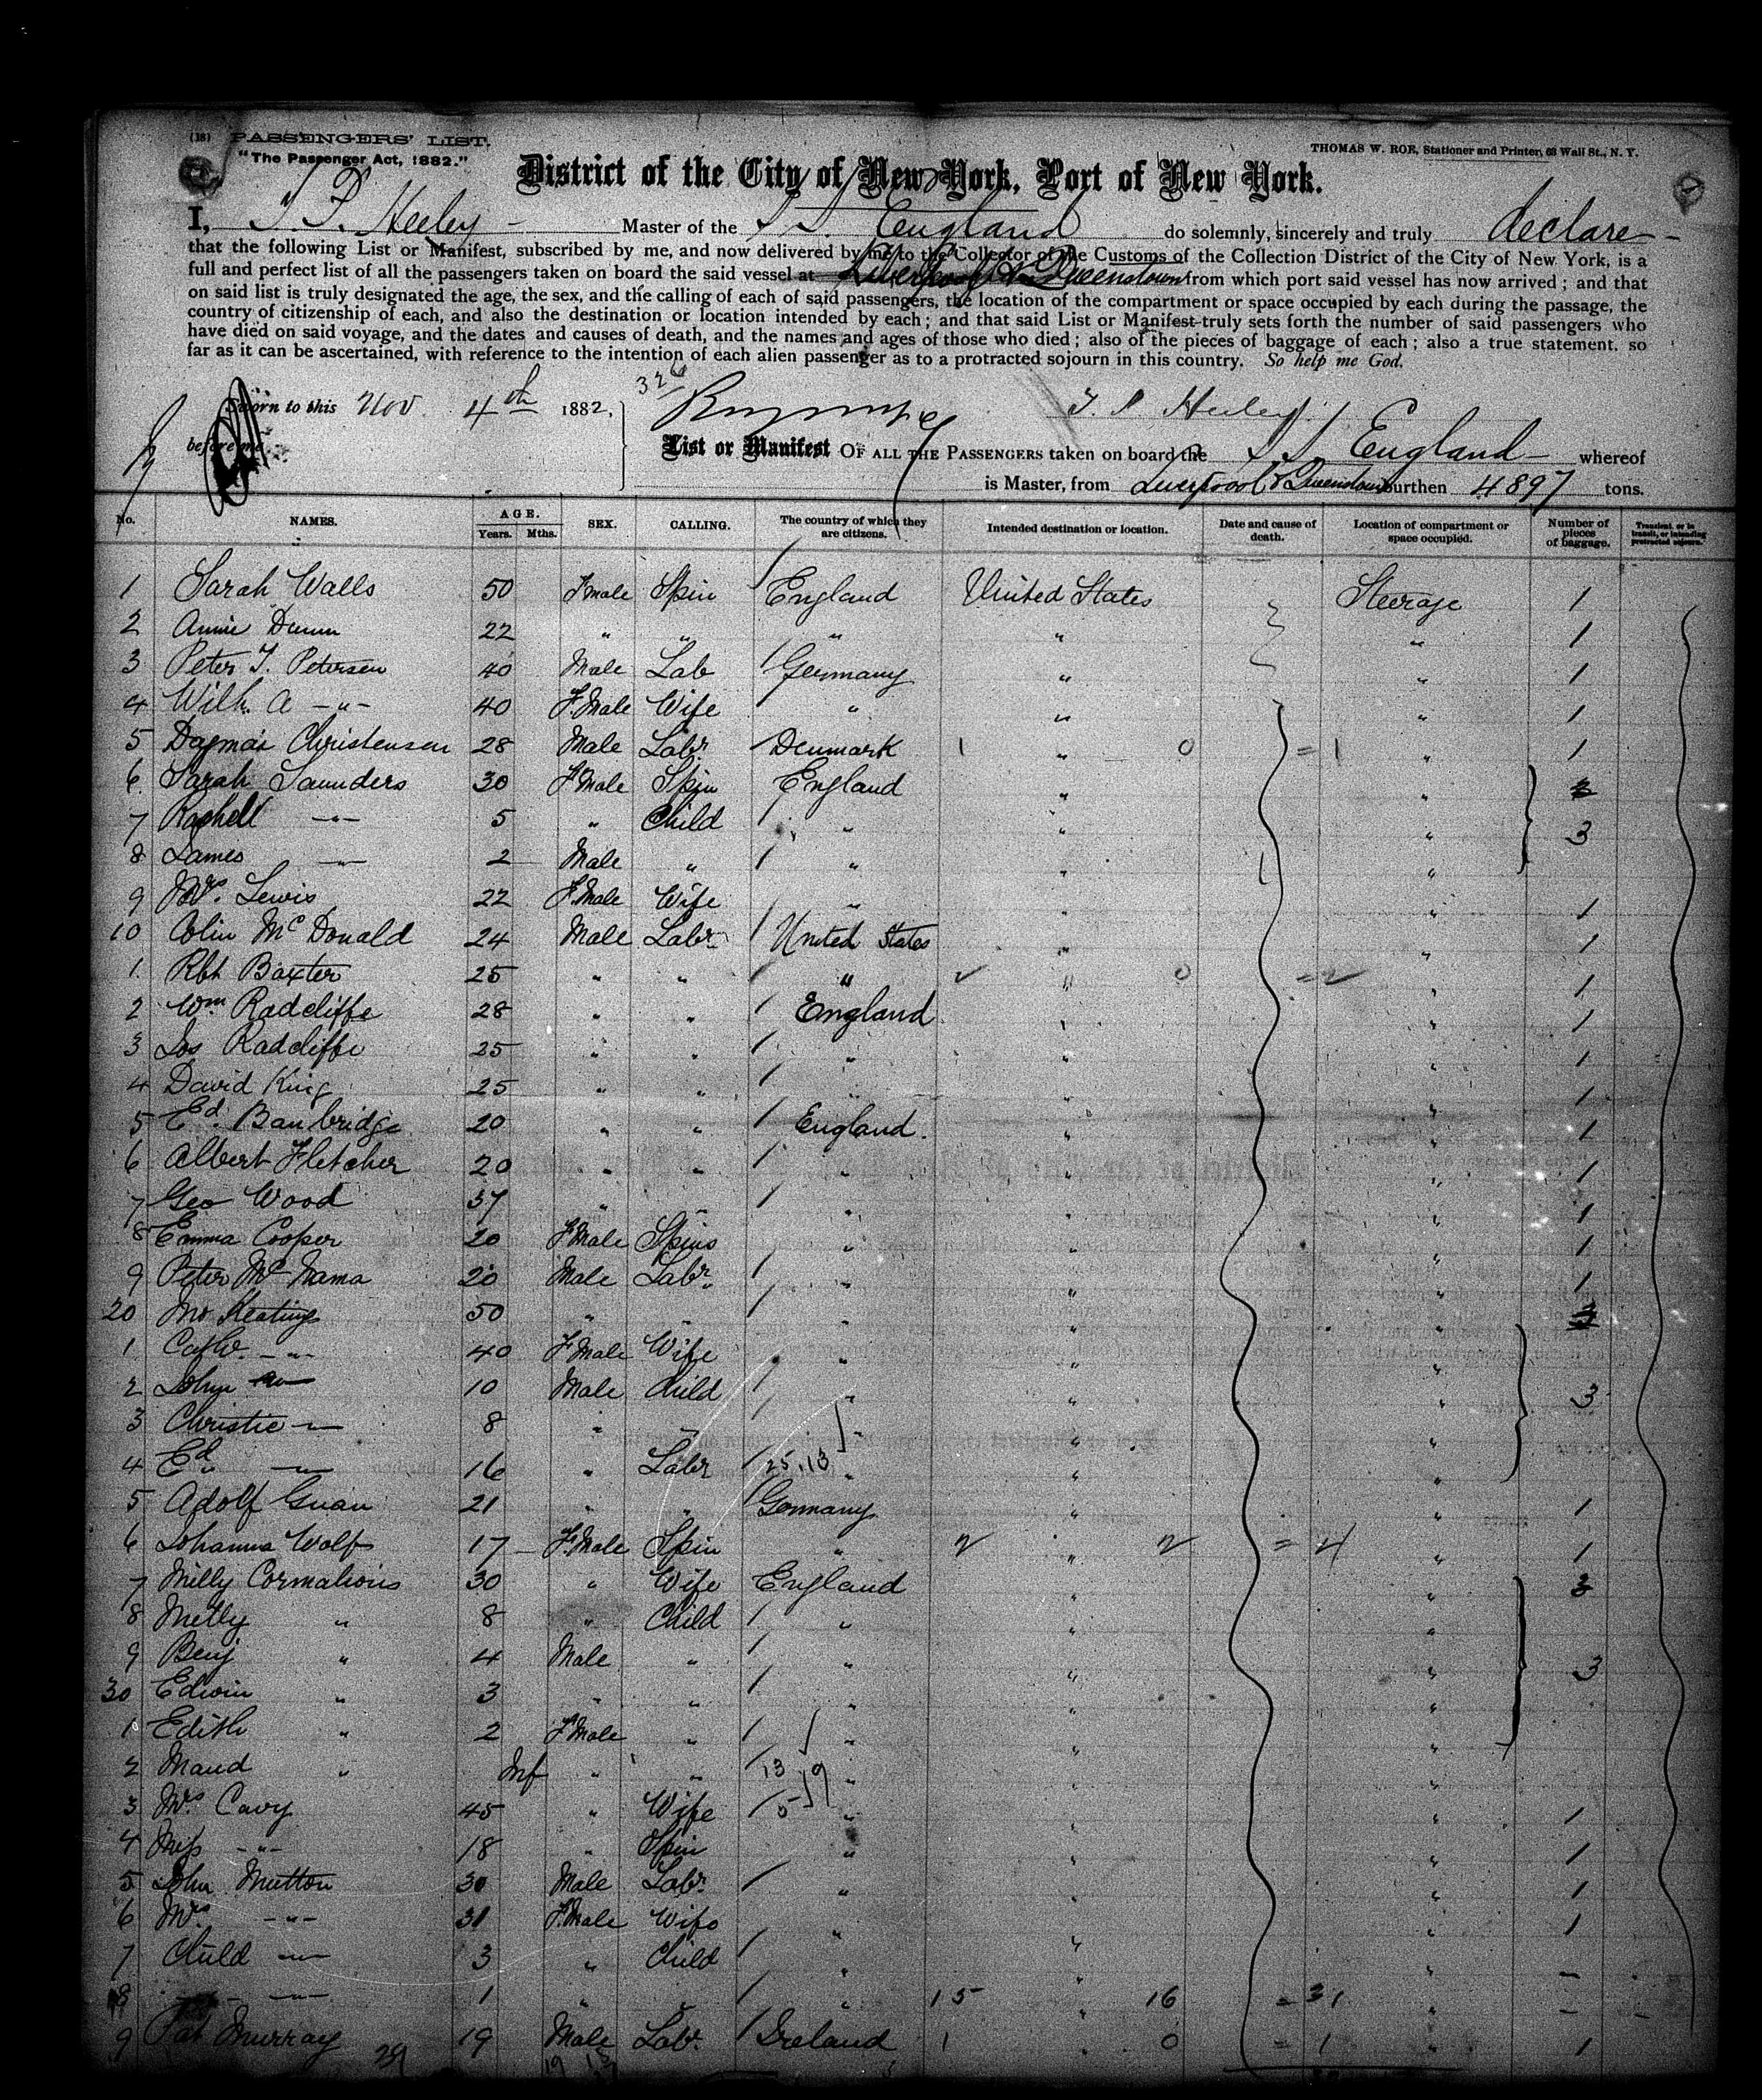 (18) PASSENGERS' LIST.
"The Passenger Act, 1882."
THOMAS W. ROE, Stationer and Printer, 63 Wall St., N. Y.
District of the City of New York, Port of New York.
I, T. P. Heeley Master of the S S. England do solemnly, sincerely and truly declare
that the following List or Manifest, subscribed by me, and now delivered by me to the Collector of the Customs of the Collection District of the City of New York, is a
full and perfect list of all the passengers taken on board the said vessel at Liverpool & Queenstown from which port said vessel has now arrived; and that
on said list is truly designated the age, the sex, and the calling of each of said passengers, the location of the compartment or space occupied by each during the passage, the
country of citizenship of each, and also the destination or location intended by each; and that said List or Manifest truly sets forth the number of said passengers who
have died on said voyage, and the dates and causes of death, and the names and ages of those who died; also of the pieces of baggage of each; also a true statement, so
far as it can be ascertained, with reference to the intention of each alien passenger as to a protracted sojourn in this country. So help me God.
Sworn to this Nov. 4th 1882, 326 T. P. Heeley
before me
List or Manifest OF ALL THE PASSENGERS taken on board the S S England whereof
is Master, from Liverpool & Queenstown burthen 4897 tons.
No. NAMES. AGE. Years. Mths. SEX. CALLING. The country of which they are citizens. Intended destination or location. Date and cause of death. Location of compartment or space occupied. Number of pieces of baggage. Transient, or in transit, or intending protracted sojourn.
1 Sarah Walls 50 Fmale Spin England United States Steerage 1
2 Annie Dunn 22 " " " " " 1
3 Peter T. Petersen 40 Male Lab Germany " " 1
4 Wilh. A -"- 40 F.Male Wife " " " 1
5 Dagmar Christensen 28 Male Labr Denmark 1 " 0 = 1 " 1
6 Sarah Saunders 30 F.Male Spin England " "
7 Rachell -"- 5 " Child " " " 3
8 James -"- 2 Male " " " "
9 Mrs. Lewis 22 F.Male Wife " " " 1
10 Colin McDonald 24 Male Labr United States " " 1
1 Rbt Baxter 25 " " " 2 " 0 = 2 " 1
2 Wm. Radcliffe 28 " " England " " 1
3 Jos Radcliffe 25 " " " " " 1
4 David King 25 " " " " " 1
5 Ed. Banbridge 20 " " England. " " 1
6 Albert Fletcher 20 " " " " " 1
7 Geo Wood 37 " " " " " 1
8 Emma Cooper 20 F.Male Spins " " " 1
9 Peter McNama 20 Male Labr " " " 1
20 Jno Keating 50 " " " " " 3
1 Cath. -"- 40 F.Male Wife " " "
2 John -"- 10 Male Child " " " 3
3 Christie -"- 8 " " " " "
4 Ed. -"- 16 " Labr 25.13 " " "
5 Adolf Guan 21 " " Germany " " 1
6 Johanna Wolf 17 F.Male Spin " 2 " 2 = 4 " 1
7 Milly Cormalious 30 " Wife England " " 3
8 Melly " 8 " Child " " "
9 Benj " 4 Male " " " " 3
30 Edwin " 3 " " " " "
1 Edith " 2 F.Male " " " "
2 Maud " Inf " " 13 9 "
3 Mrs Cavy 45 " Wife 5 " " " 1
4 Miss -"- 18 " Spin " " " 1
5 John Mutton 30 Male Labr " " " 1
6 Mrs -"- 31 F.Male Wife " " " 1
7 Child -"- 3 " Child " " " -
8 -"- -"- 1 " " " 15 " 16 = 31 " -
9 Pat Murray 19 Male Labr. Ireland 1 " 0 = 1 " 1
39 19